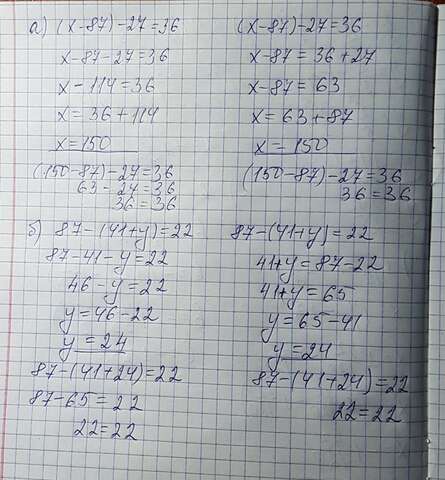 а) (x-87)-27=36
x-87-27=36
x-114=36
x=36+114
x=150
(150-87)-27=36
63-27=36
36=36
(x-87)-27=36
x-87=36+27
x-87=63
x=63+87
x=150
(150-87)-27=36
36=36
б) 87-(41+y)=22
87-41-y=22
46-y=22
y=46-22
y=24
87-(41+24)=22
87-65=22
22=22
87-(41+y)=22
41+y=87-22
41+y=65
y=65-41
y=24
87-(41+24)=22
22=22